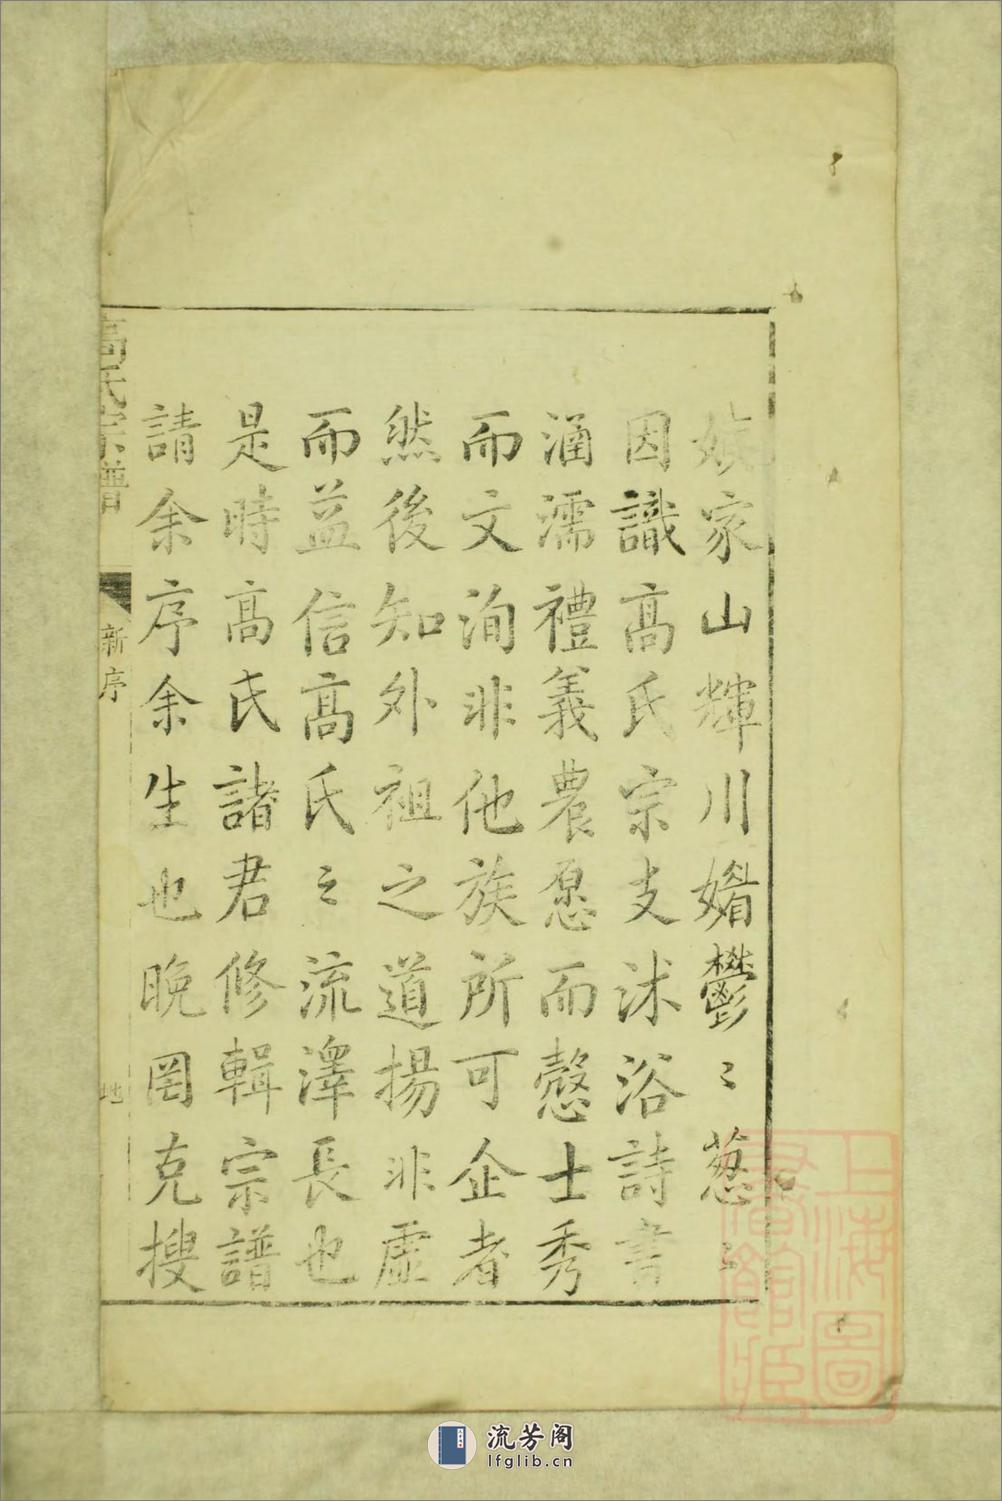 嫔家山輝川媚鬱〻葱〻
因識髙氏宗支沐浴詩書
涵濡禮義農愿而慤士秀
而文洵非他族所可企者
然後知外祖之道揚非虛
而益信髙氏之流澤長也
是時髙氏諸君修輯宗譜
請余序余生也晚罔克搜
高氏宗譜
新序
地
上海圖書館藏
流芳阁
lfglib.cn